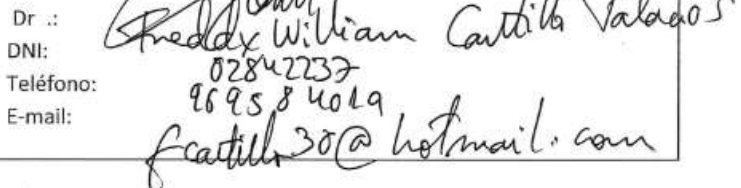 Dr .: Freddy William Castillo Palacios
DNI: 02842237
Teléfono: 969584019
E-mail: fcastillo30@hotmail.com